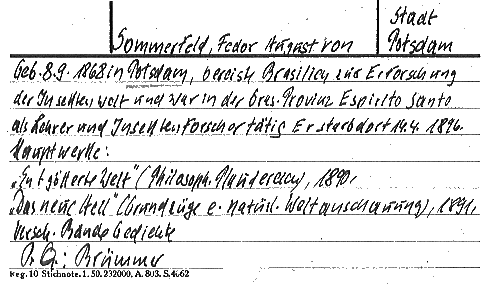 Stadt
Sommerfeld, Fedor August von Potsdam
Geb. 8.9. 1868 in Potsdam, bereiste Brasilien zur Erforschung
der Insektenwelt und war in der bras. Provinz Espirito Santo
als Lehrer und Insektenforscher tätig Er starb dort 14.4. 1896.
Hauptwerke:
„Entgötterte Welt" (Philosoph. Plaudereien), 1890.
„Das neue Heil" (Grundzüge e. natürl. Weltanschauung), 1891,
Versch. Bände Gedichte
P. Qu.: Brümmer
Reg. 10 Stichnote. 1. 50. 232000. A. 803. S. 4662